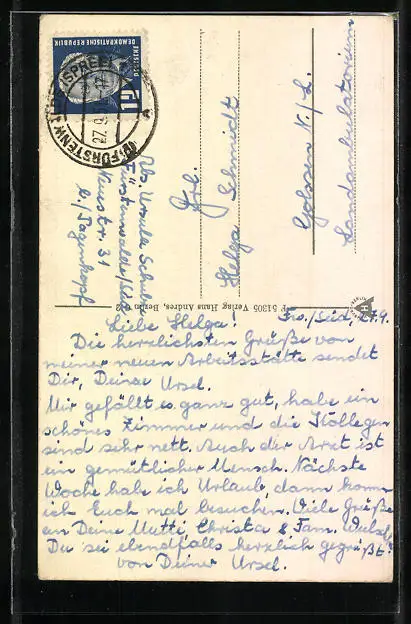 Liebe Helga! Fro./Süd, 27.9.
Die herzlichsten Grüße von
meiner neuen Arbeitsstätte sendet
Dir, Deine Ursel.
Mir gefällt es ganz gut, habe ein
schönes Zimmer und die Kollegen
sind sehr nett. Auch der Arzt ist
ein gemütlicher Mensch. Nächste
Woche hab ich Urlaub, dann komm
ich Euch mal besuchen. Viele Grüße
an Deine Mutti, Christa & Fam.
Du sei ebendfalls herzlich gegrüßt!
von Deiner Ursel.
Abs. Ursula Schulze
Fürstenwalde/Süd
Neustr. 31
b./Pagenkopf
Frl.
Helga Schmidt
Golssen N./L.
Landambulatorium
P 51305 Verlag Hans Andres, Berlin
DEUTSCHE
DEMOKRATISCHE REPUBLIK
FÜRSTENWALDE (SPREE)
27.9.5